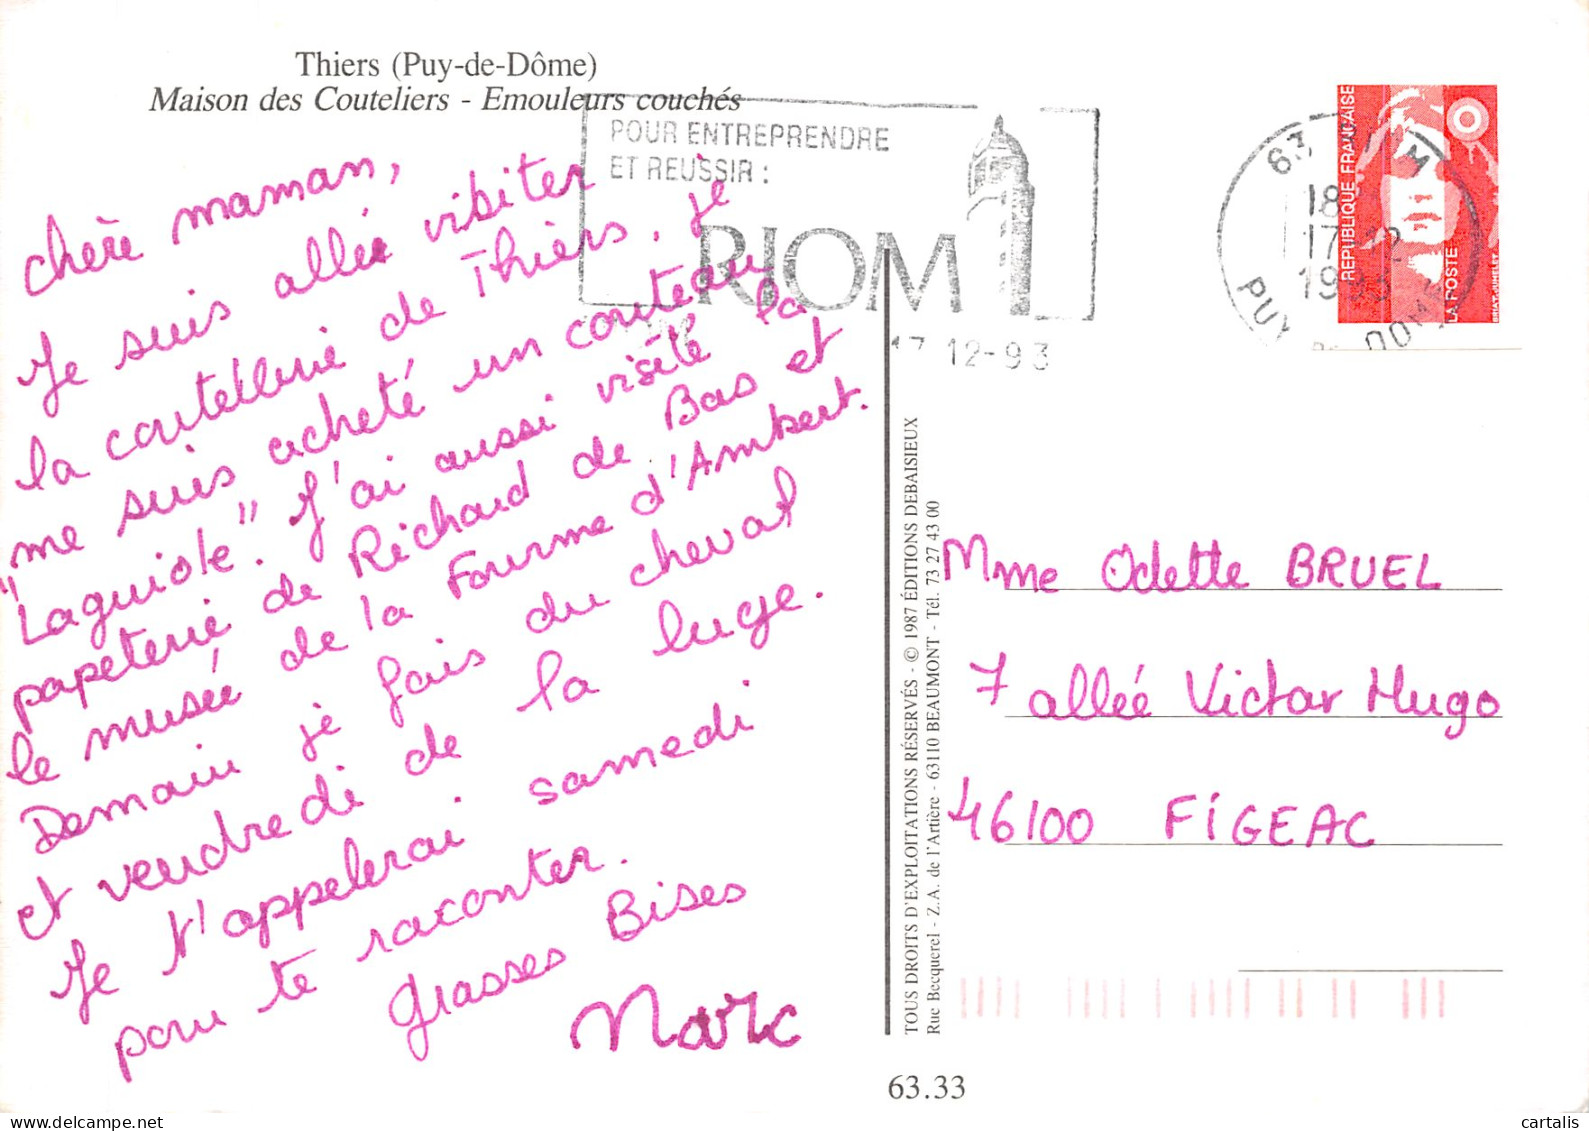 Thiers (Puy-de-Dôme)
Maison des Couteliers - Emouleurs couchés
Chère maman,
Je suis allée visiter
la coutellerie de Thiers. je
me suis acheté un couteau
"Laguiole". J'ai aussi visité la
papeterie de Richard de Bas et
le musée de la Fourme d'Ambert.
Demain je fais du cheval
et vendredi de la luge.
Je t'appelerai samedi
pour te raconter.
Grasses Bises
Marc
POUR ENTREPRENDRE
ET REUSSIR :
RIOM
17 12-93
63 M
18
17
19
PUY DOME
REPUBLIQUE FRANÇAISE
LA POSTE
TOUS DROITS D'EXPLOITATIONS RÉSERVÉS - © 1987 ÉDITIONS DEBAISIEUX
Rue Becquerel - Z.A. de l'Artière - 63110 BEAUMONT - Tél. 73 27 43 00
Mme Odette BRUEL
7 allée Victor Hugo
46100 FIGEAC
63.33
cartalis